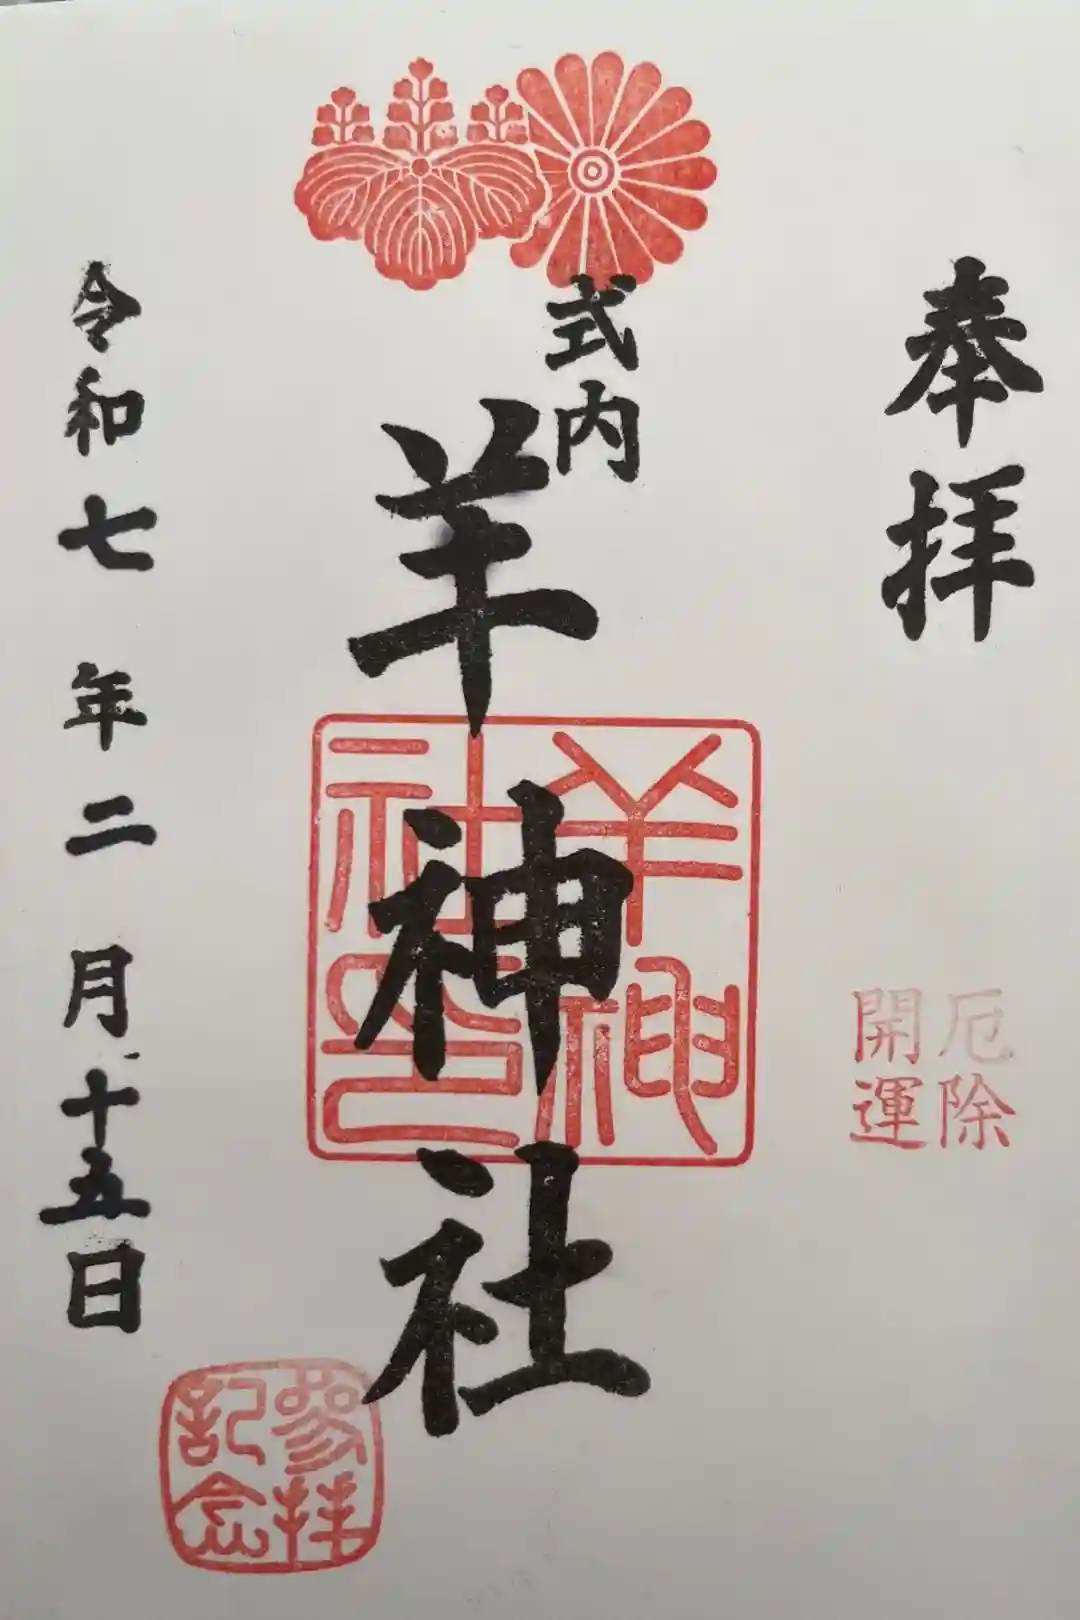 奉拝
厄除
開運
式内
羊神社
羊神
社印
令和七年二月十五日
参拝
記念